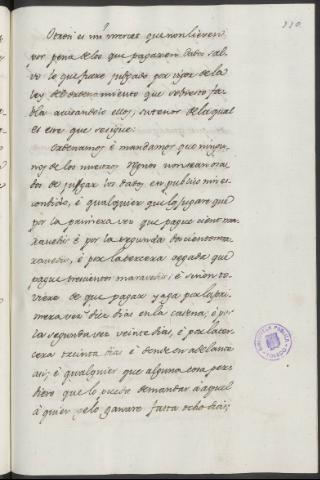 330.
Otrosi es mi merced que non lieven
por pena de los que pagaren dados sal-
vo lo que fuere juzgado por vigor de la
ley del ordenamiento que sobresto fa-
bla acusandolo ellos, su tenor de la qual
es este que sesigue:
Ordenamos é mandamos que ningu-
nos de los nuestros Regnos non sean osa-
dos de jusgar los dados en publico nin es-
condido, é qualquier que lo jugare que
por la primera vez que pague cient ma-
ravedis: é por la segunda doscientos ma-
ravedis, é por la tercera vegada que
pague trescientos maravedis: é si non to-
viere de que pagar yaga por la pri-
mera vez diez dias en la cadena; é por
la segunda vez veinte dias, é por la ter-
cera treinta dias é dende en adelante
asi; é qualquier que alguna cosa per-
diere que lo pueda demandar á aquel
á quien gelo ganare fasta ocho dias;
BIBLIOTECA PUBLICA
TOLEDO